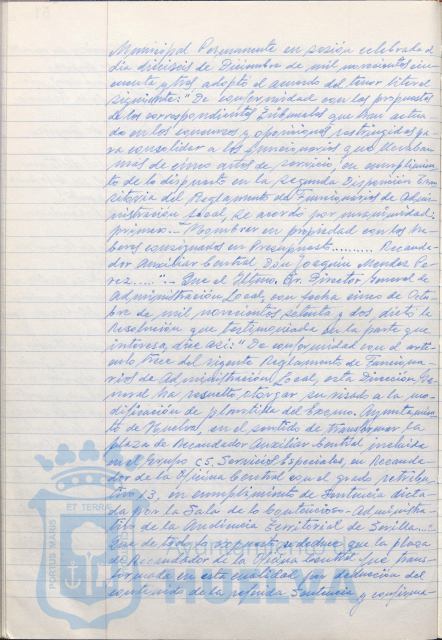 Municipal Permanente en sesión celebrada el
día dieciseis de Diciembre de mil novecientos cin-
cuenta y tres adoptó el acuerdo del tenor literal
siguiente: "De conformidad con las propuestas
de los correspondientes Tribunales que han actua
do en los concursos y oposiciones restringidos pa
ra consolidar a los funcionarios que llevaban
más de cinco años de servicio, en cumplimien
to de lo dispuesto en la segunda Disposición Tran
sitoria del Reglamento de Funcionarios de Admi-
nistración Local, se acordó por unanimidad:
primero.- Nombrar en propiedad con los ha-
beres consignados en Presupuesto.......... Recauda-
dor Auxiliar Central Don Joaquin Mendez Pe-
rez.....".- Que el Iltmo. Sr. Director General de
Administración Local, con fecha cinco de Octu
bre de mil novecientos setenta y dos, dictó la
Resolución que testimoniada en la parte que
interesa, dice así: "De conformidad con el artí-
culo trece del vigente Reglamento de Funciona-
rios de Administración Local, esta Dirección Ge-
neral ha resuelto otorgar su visado a la mo-
dificación de plantilla del Excmo. Ayuntamien-
to de Huelva, en el sentido de transformar la
plaza de Recaudador Auxiliar Central incluida
en el Grupo C), Servicios Especiales, en Recauda-
dor de la Oficina Central con el grado retribu-
tivo 13, en cumplimiento de Sentencia dicta-
da por la Sala de lo Contencioso-Administra-
tivo de la Audiencia Territorial de Sevilla...
Que de todo lo expuesto se deduce que la plaza
de Recaudador de la Oficina Central fue trans-
formada en esta entidad con deducción del
contenido de la referida Sentencia y confirma-
PORTUS MARIS ET TERRAE
Ayuntamiento de
HUELVA